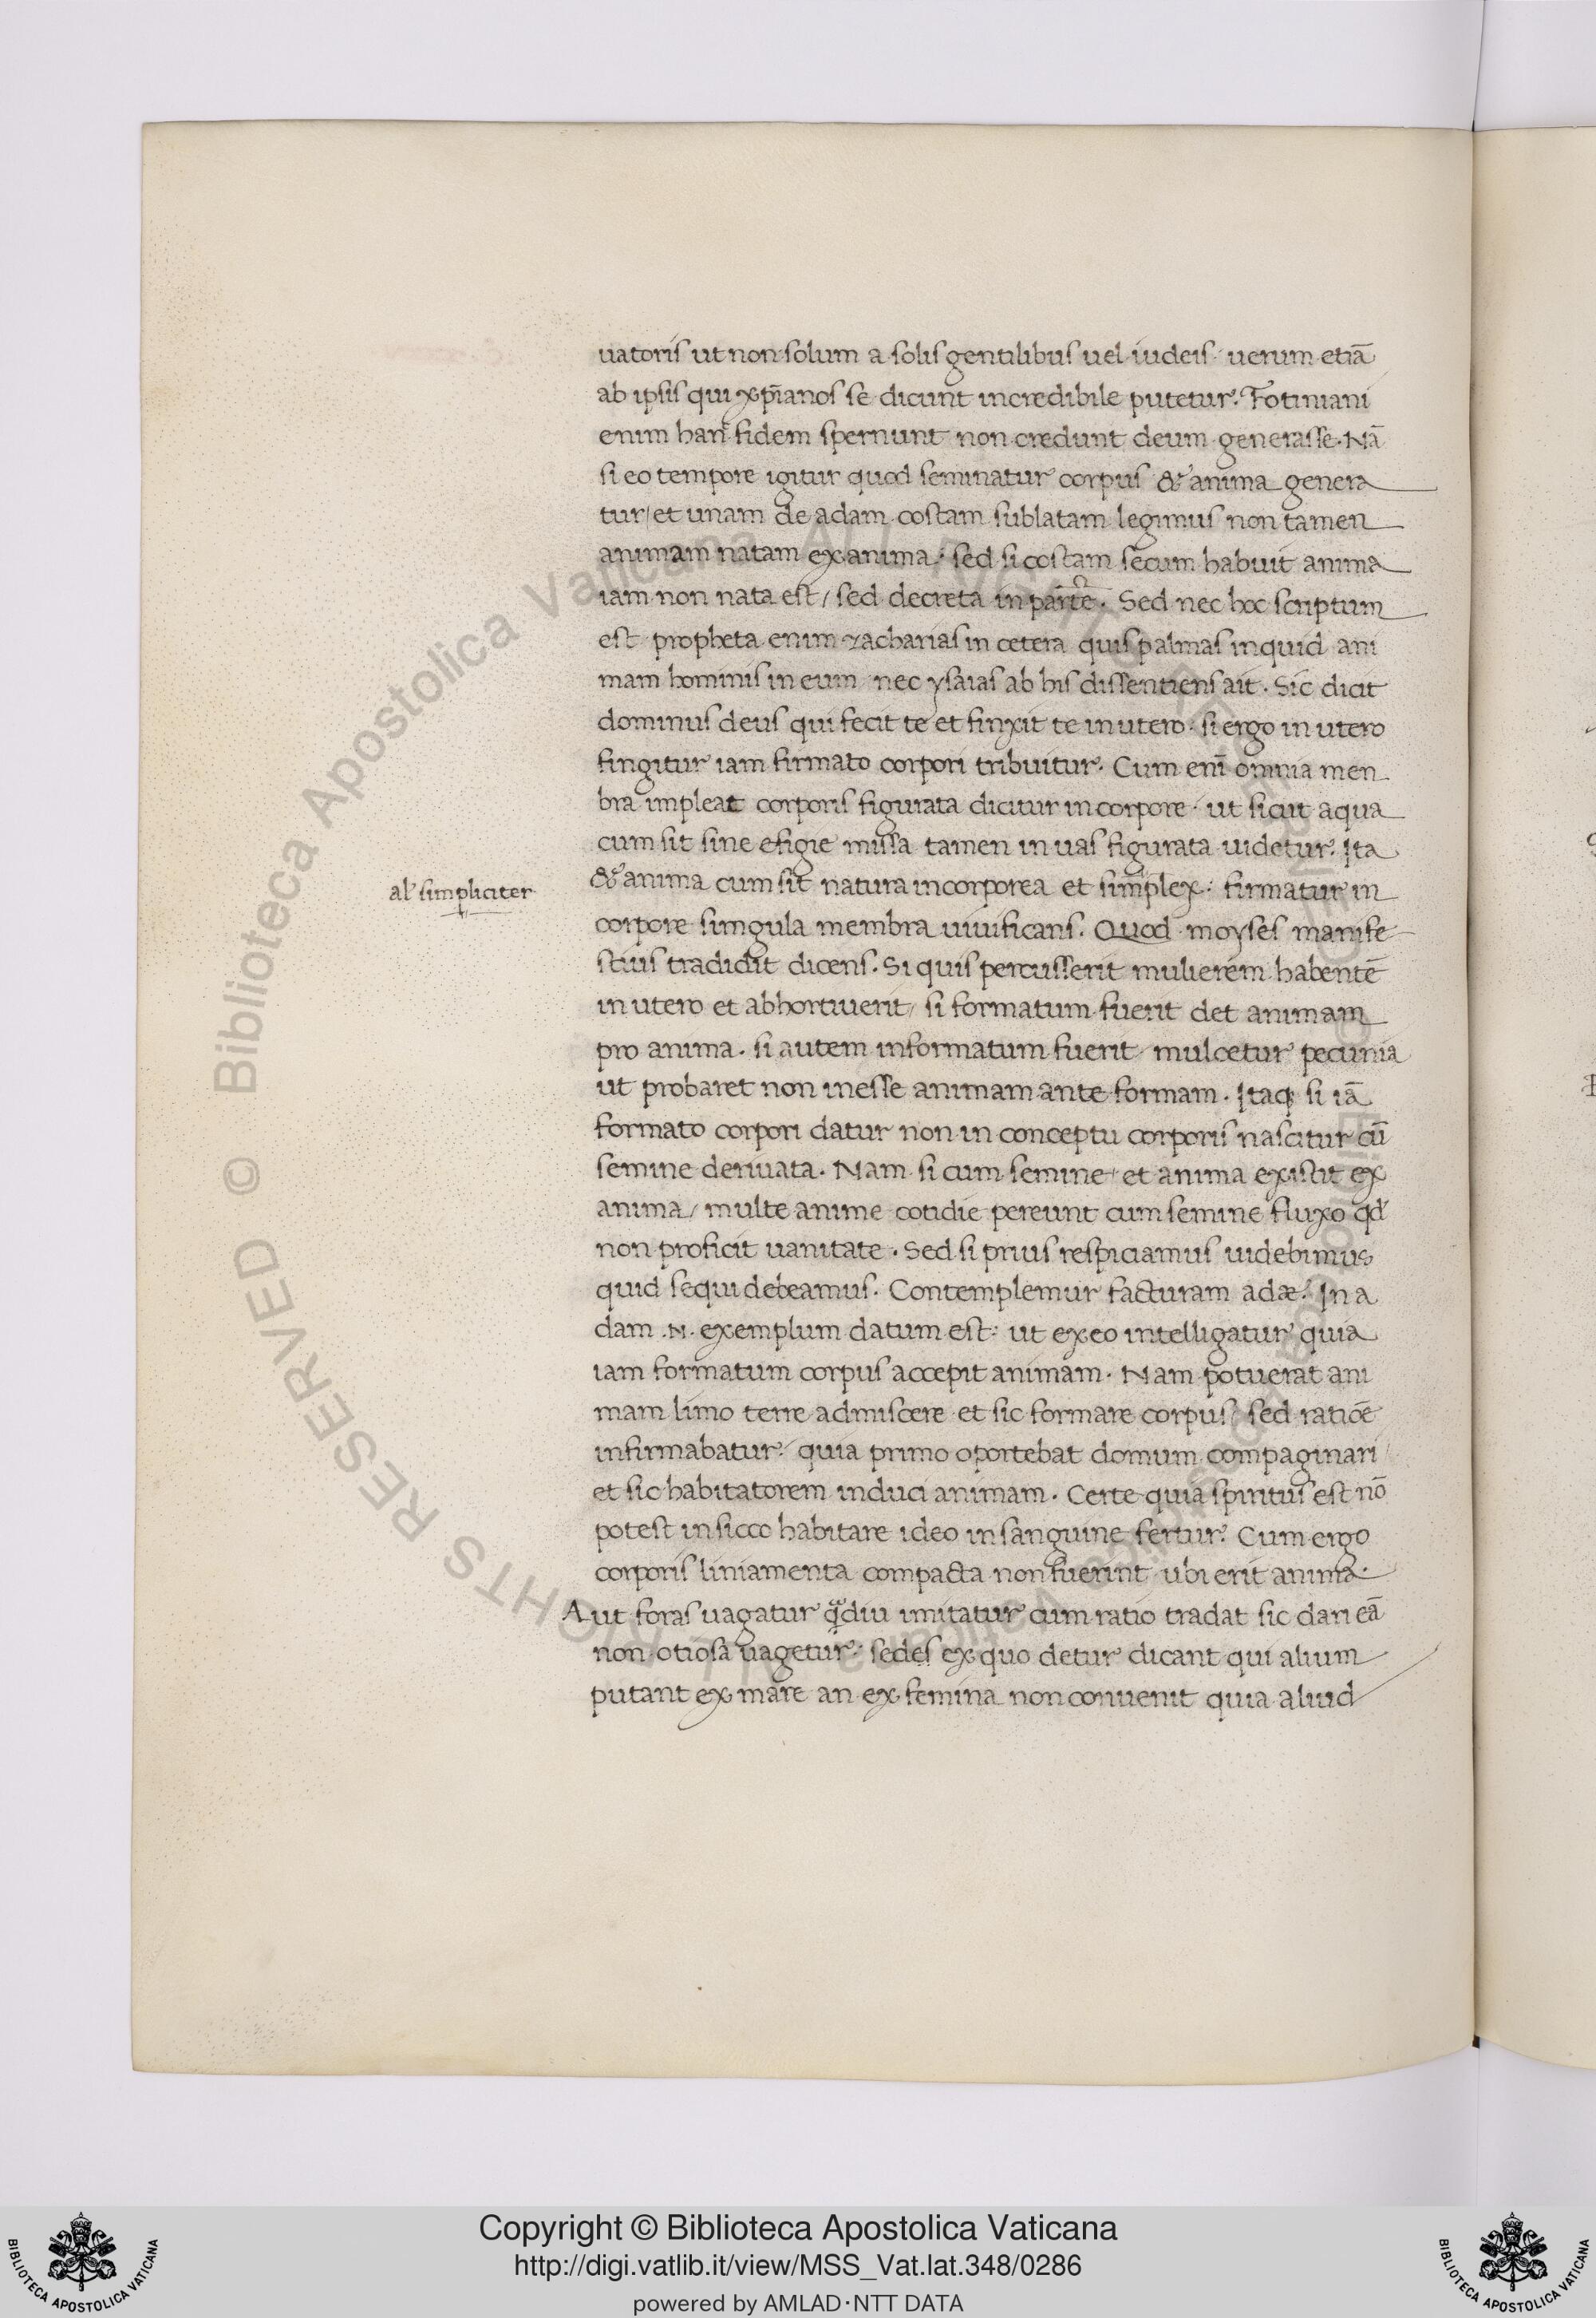 uatoris ut non solum a solis gentilibus uel iudeis uerum etiā
ab ipsis qui xp̄ianos se dicunt incredibile putetur. Fotiniani
enim han̄ fidem spernunt non credunt deum generasse. Nā
si eo tempore igitur quod seminatur corpus & anima genera
tur / et unam de adam costam sublatam legimus non tamen
animam natam ex anima. sed si costam secum habuit anima
iam non nata est / sed decreta in parte. Sed nec hoc scriptum
est propheta enim zacharias in cetera quis palmas inquid ani
mam hominis in eum nec ysaias ab his dissentiens ait. Sic dicit
dominus deus qui fecit te et finxit te in utero. si ergo in utero
fingitur iam firmato corpori tribuitur. Cum enī omnia men
bra impleat corporis figurata dicitur in corpore. ut sicut aqua
cum sit sine efigie missa tamen in uas figurata uidetur. Ita
al' simpliciter
& anima cum sit natura incorporea et simplex. firmatur in
corpore simgula membra uiuificans. Quod moyses manife
stius tradidit dicens. Si quis percusserit mulierem habentē
in utero et abhortiuerit / si formatum fuerit det animam
pro anima. si autem informatum fuerit mulcetur pecunia
ut probaret non inesse animam ante formam. Itaq; si iā
formato corpori datur non in conceptu corporis nascitur cū
semine deriuata. Nam si cum semine et anima existit ex
anima / multe anime cotidie pereunt cum semine fluxo qd'
non proficit uanitate. Sed si prius respiciamus uidebimus
quid sequi debeamus. Contemplemur facturam adæ. In a
dam .N. exemplum datum est: ut ex eo intelligatur quia
iam formatum corpus accepit animam. Nam potuerat ani
mam limo terre admiscere et sic formare corpus / sed ratiōe
infirmabatur. quia primo oportebat domum compaginari
et sic habitatorem induci animam. Certe quia spiritus est nō
potest in sicco habitare ideo in sanguine fertur. Cum ergo
corporis liniamenta compacta non fuerint ubi erit anima.
Aut foras uagatur q̄diu imitatur cum ratio tradat sic dari eā
non otiosa uagetur. sedes ex quo detur dicant qui alium
putant ex mare an ex femina non conuenit quia aliud
© Biblioteca Apostolica Vaticana
ALL RIGHTS RESERVED
Copyright © Biblioteca Apostolica Vaticana
http://digi.vatlib.it/view/MSS_Vat.lat.348/0286
powered by AMLAD·NTT DATA
BIBLIOTECA APOSTOLICA VATICANA
BIBLIOTECA APOSTOLICA VATICANA